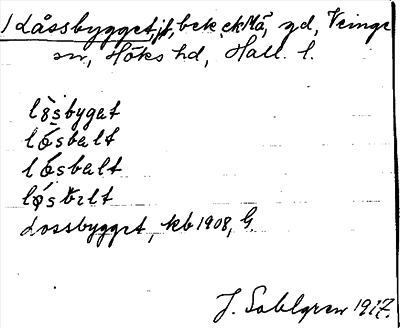 1 Låssbygget, jf, bek. ekMä, gd, Veinge
sn, Höks hd, Hall. l.
lòsbyget
lósbalt
lósbalt
lósbelt
Lossbygget, kb 1908, G.
J. Sahlgren 1917.